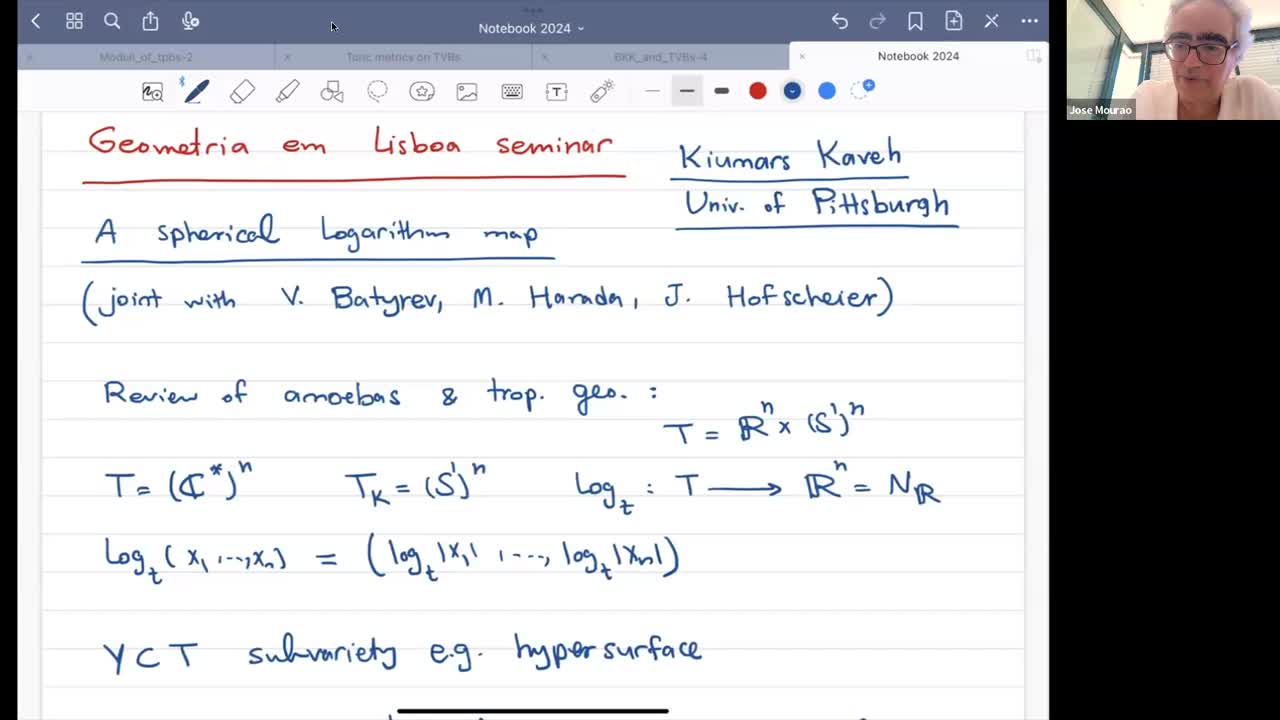 Notebook 2024
Moduli_of_tpbs-2
Toric metrics on TVBs
BKK_and_TVBs-4
Notebook 2024
Jose Mourao
Geometria em Lisboa seminar
Kiumars Kaveh
Univ. of Pittsburgh
A spherical Logarithm map
(joint with V. Batyrev, M. Harada, J. Hofscheier)
Review of amoebas & trop. geo. :
T = ℝⁿ × (S¹)ⁿ
T = (ℂ*)ⁿ T_K = (S¹)ⁿ Log_t : T ⟶ ℝⁿ = N_ℝ
Log_t (x₁, ..., xₙ) = (log_t |x₁|, ..., log_t |xₙ|)
Y ⊂ T subvariety e.g. hypersurface